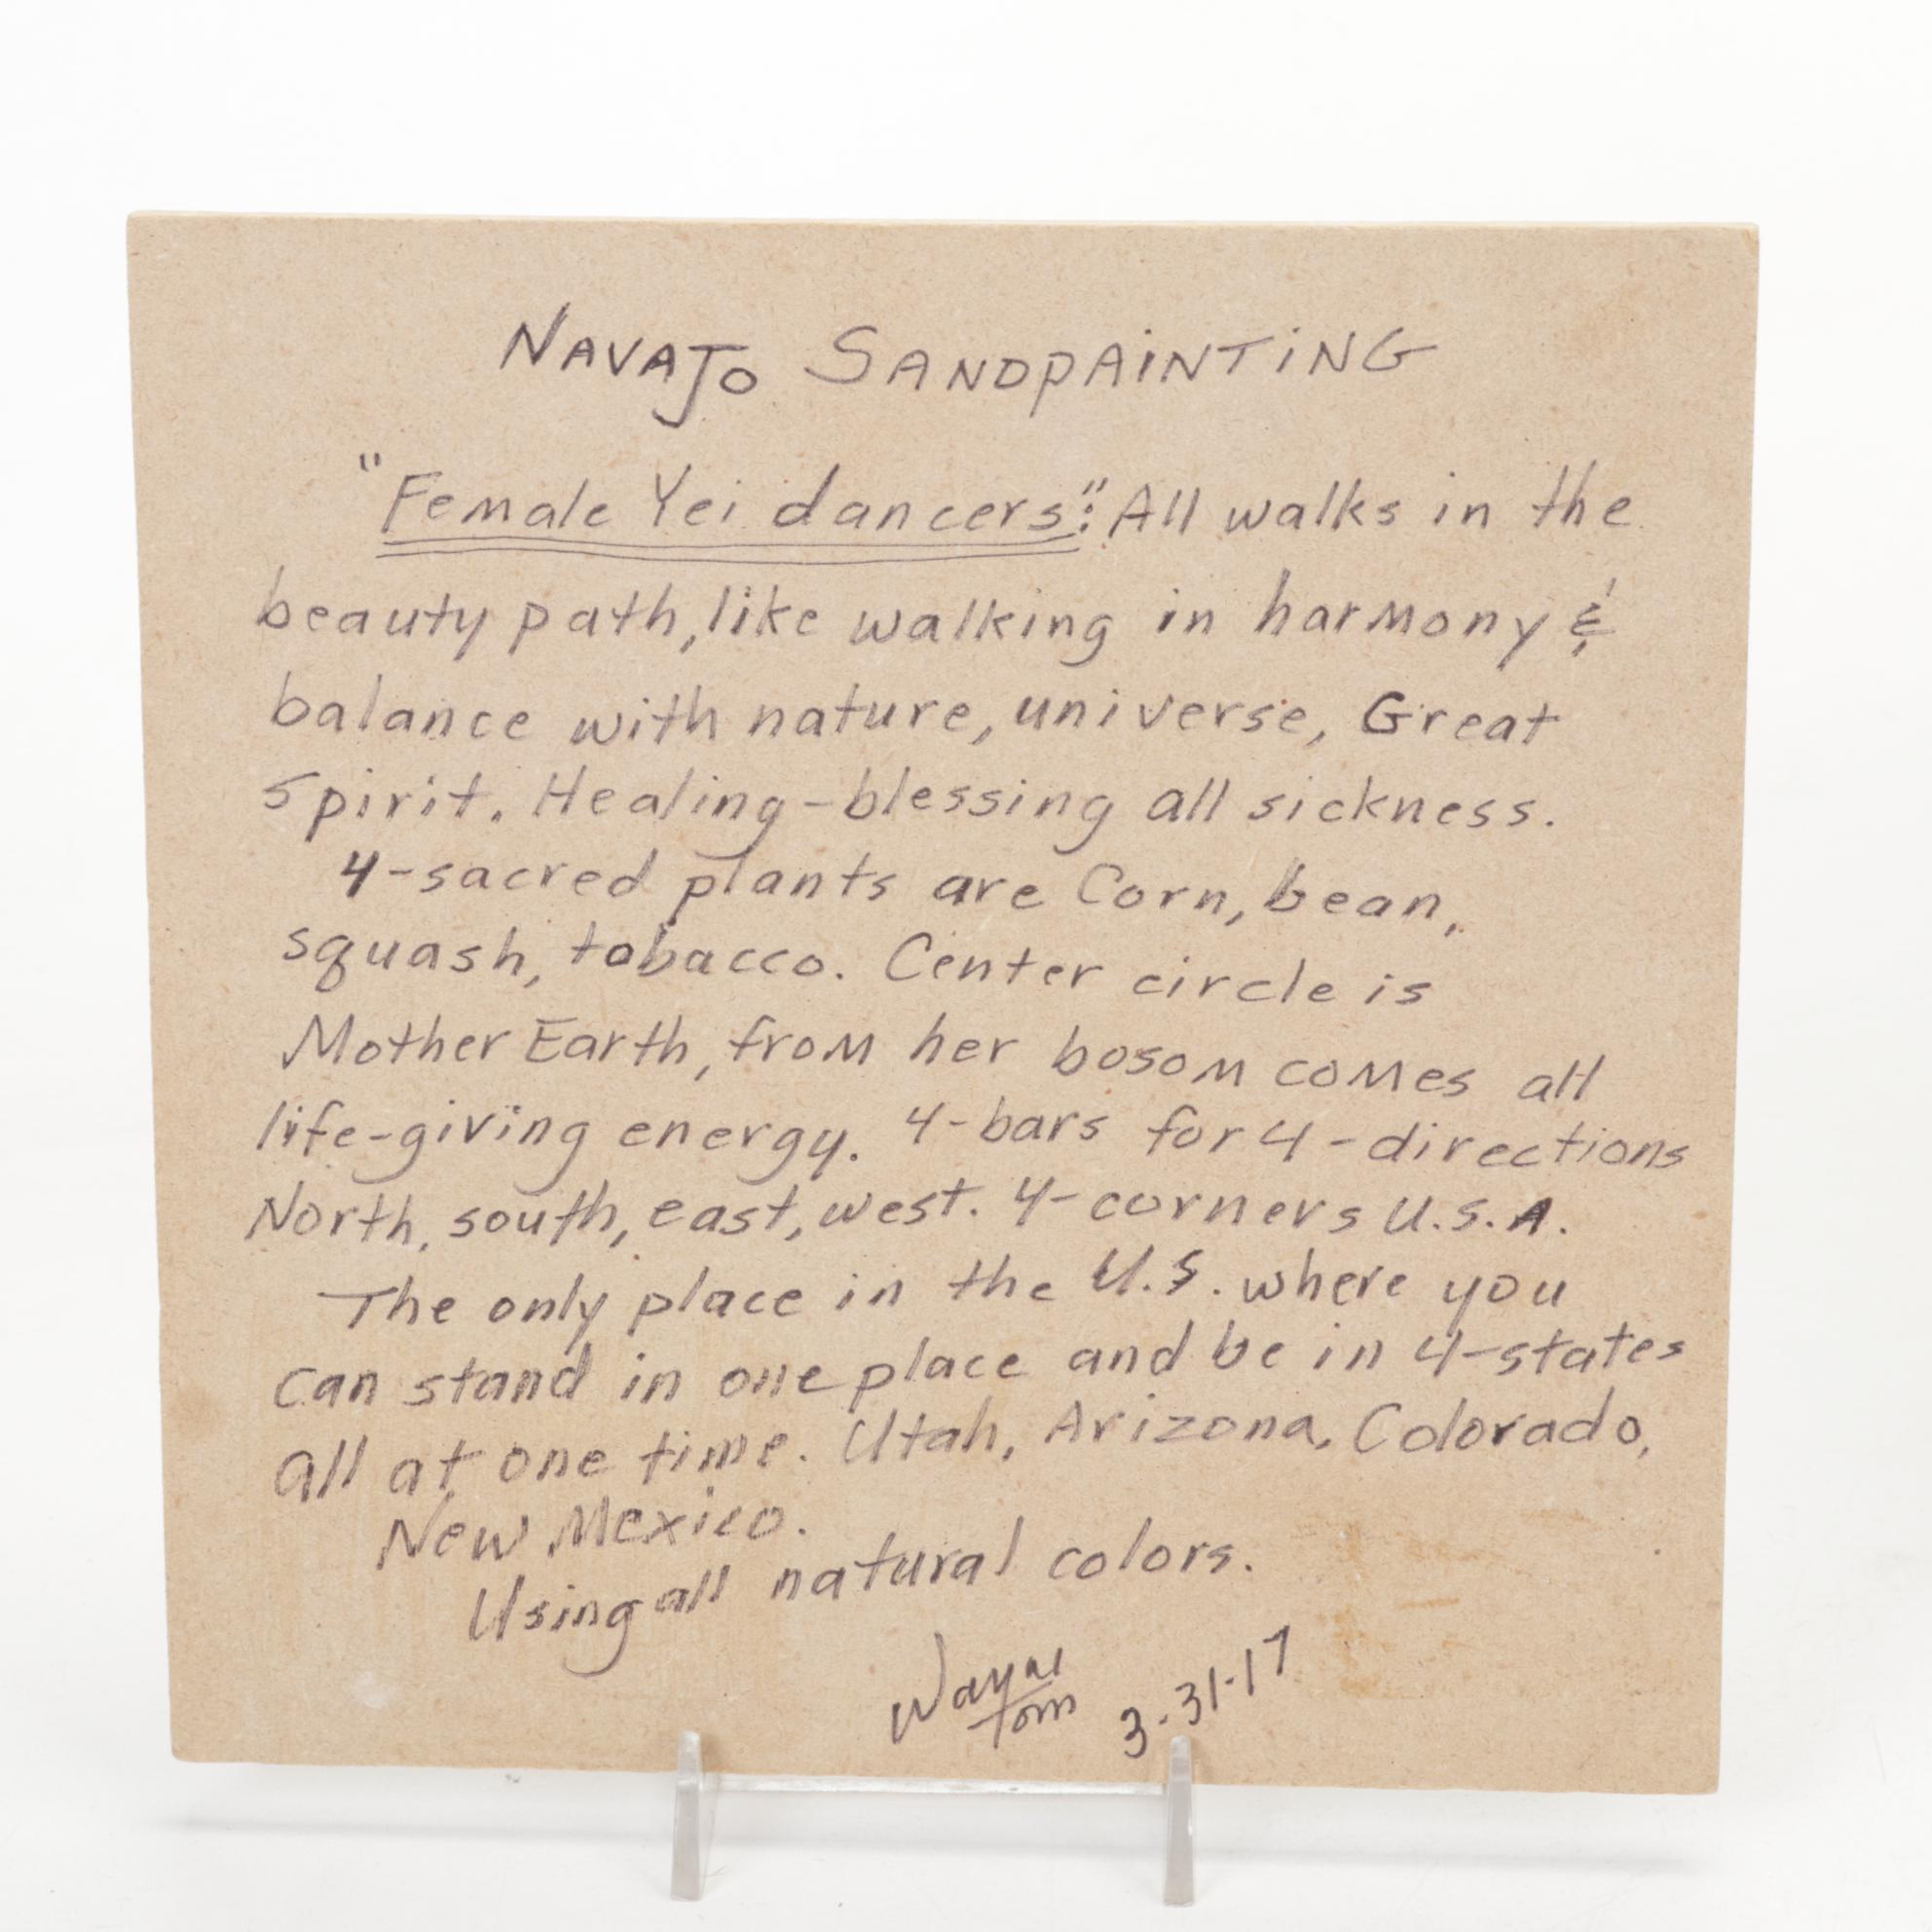 NAVAJO SANDPAINTING
"Female Yei dancers": All walks in the
beauty path, like walking in harmony &
balance with nature, universe, Great
Spirit. Healing-blessing all sickness.
4-sacred plants are Corn, bean,
squash, tobacco. Center circle is
Mother Earth, from her bosom comes all
life-giving energy. 4-bars for 4-directions
North, south, east, west. 4-corners U.S.A.
The only place in the U.S. where you
can stand in one place and be in 4-states
all at one time. Utah, Arizona, Colorado,
New Mexico.
Using all natural colors.
Wayne
Tom 3-31-17